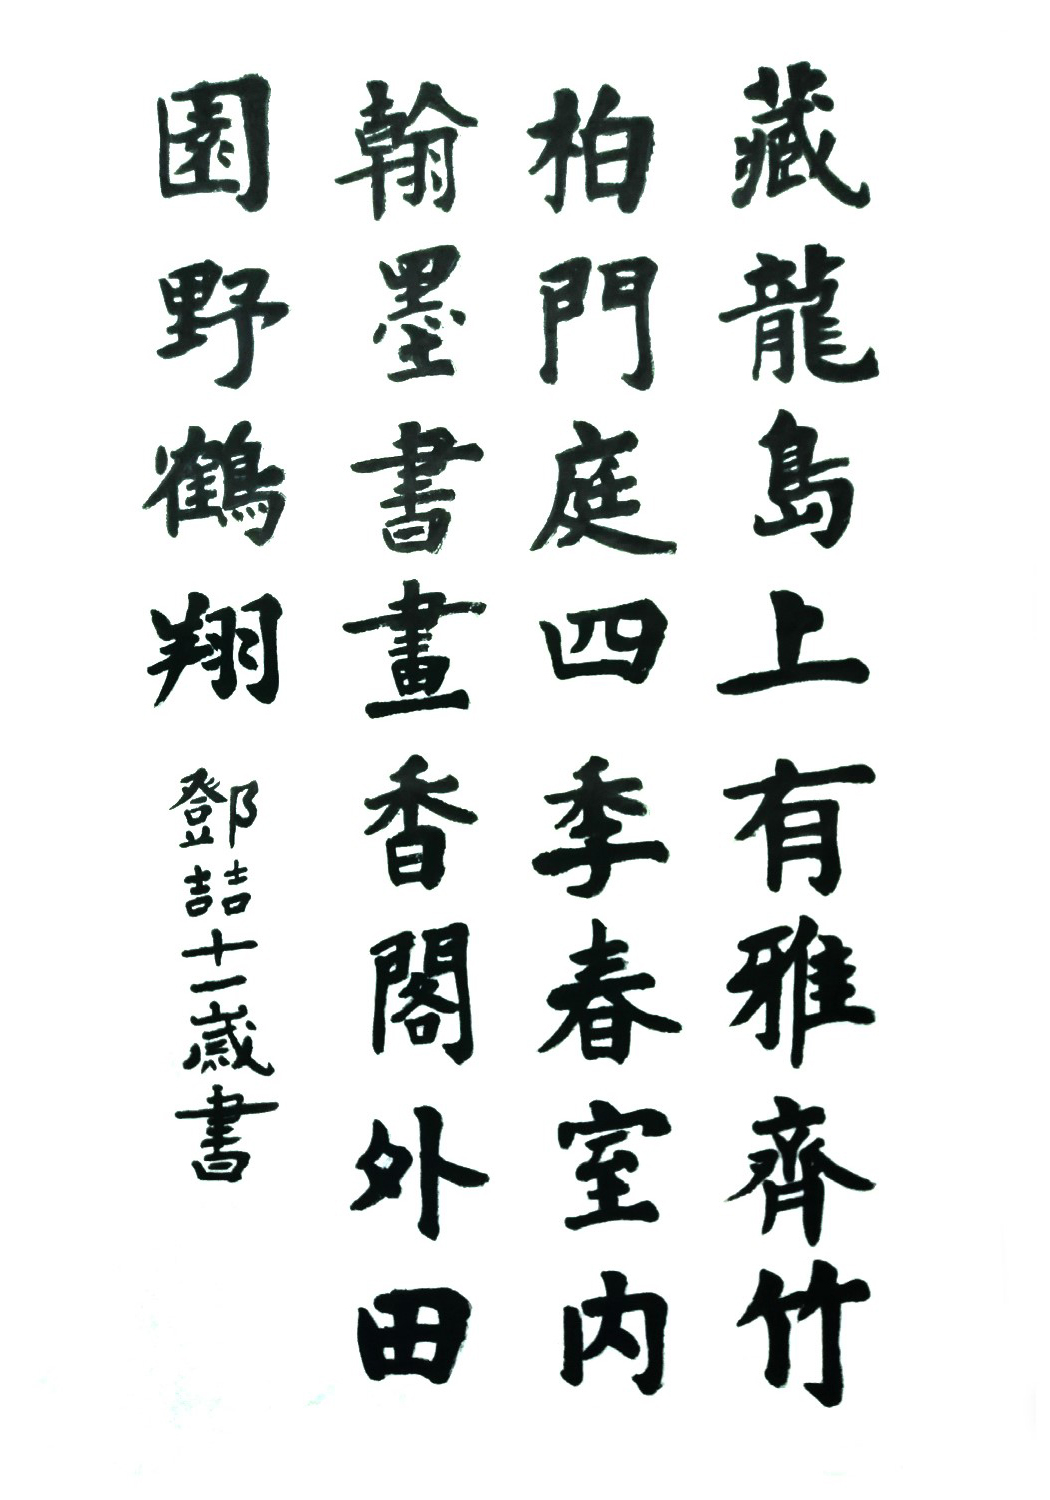 藏龍島上有雅齊竹
柏門庭四季春室内
翰墨書畫香閣外田
園野鶴翔
鄧喆十一歲書